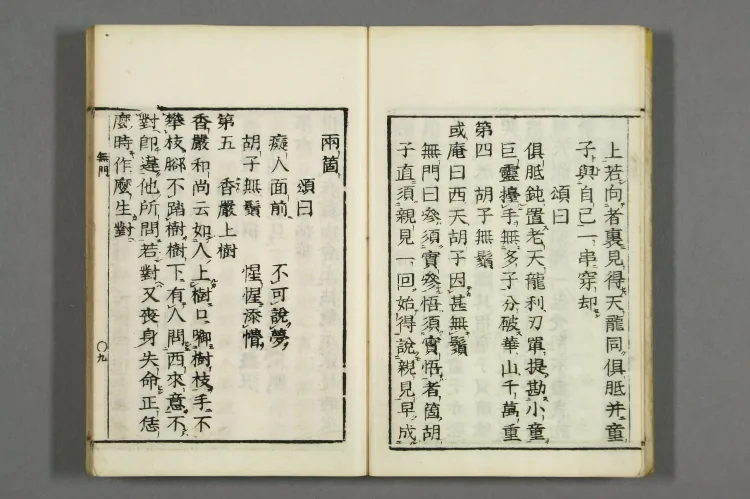 上若向者裏見得天龍同俱胝并童
子與自己一串穿却
頌曰
俱胝鈍置老天龍利刃單提勘小童
巨靈擡手無多子分破華山千萬重
第四　胡子無鬚
或庵曰西天胡子因甚無鬚
無門曰參須實參悟須實悟者箇胡
子直須親見一回始得說親見早成
兩箇
頌曰
癡人面前　不可說夢
胡子無鬚　惺惺添懵
第五　香嚴上樹
香嚴和尚云如人上樹口啣樹枝手不
攀枝腳不踏樹樹下有人問西來意不
對即違他所問若對又喪身失命正恁
麼時作麼生對
無門
〇九